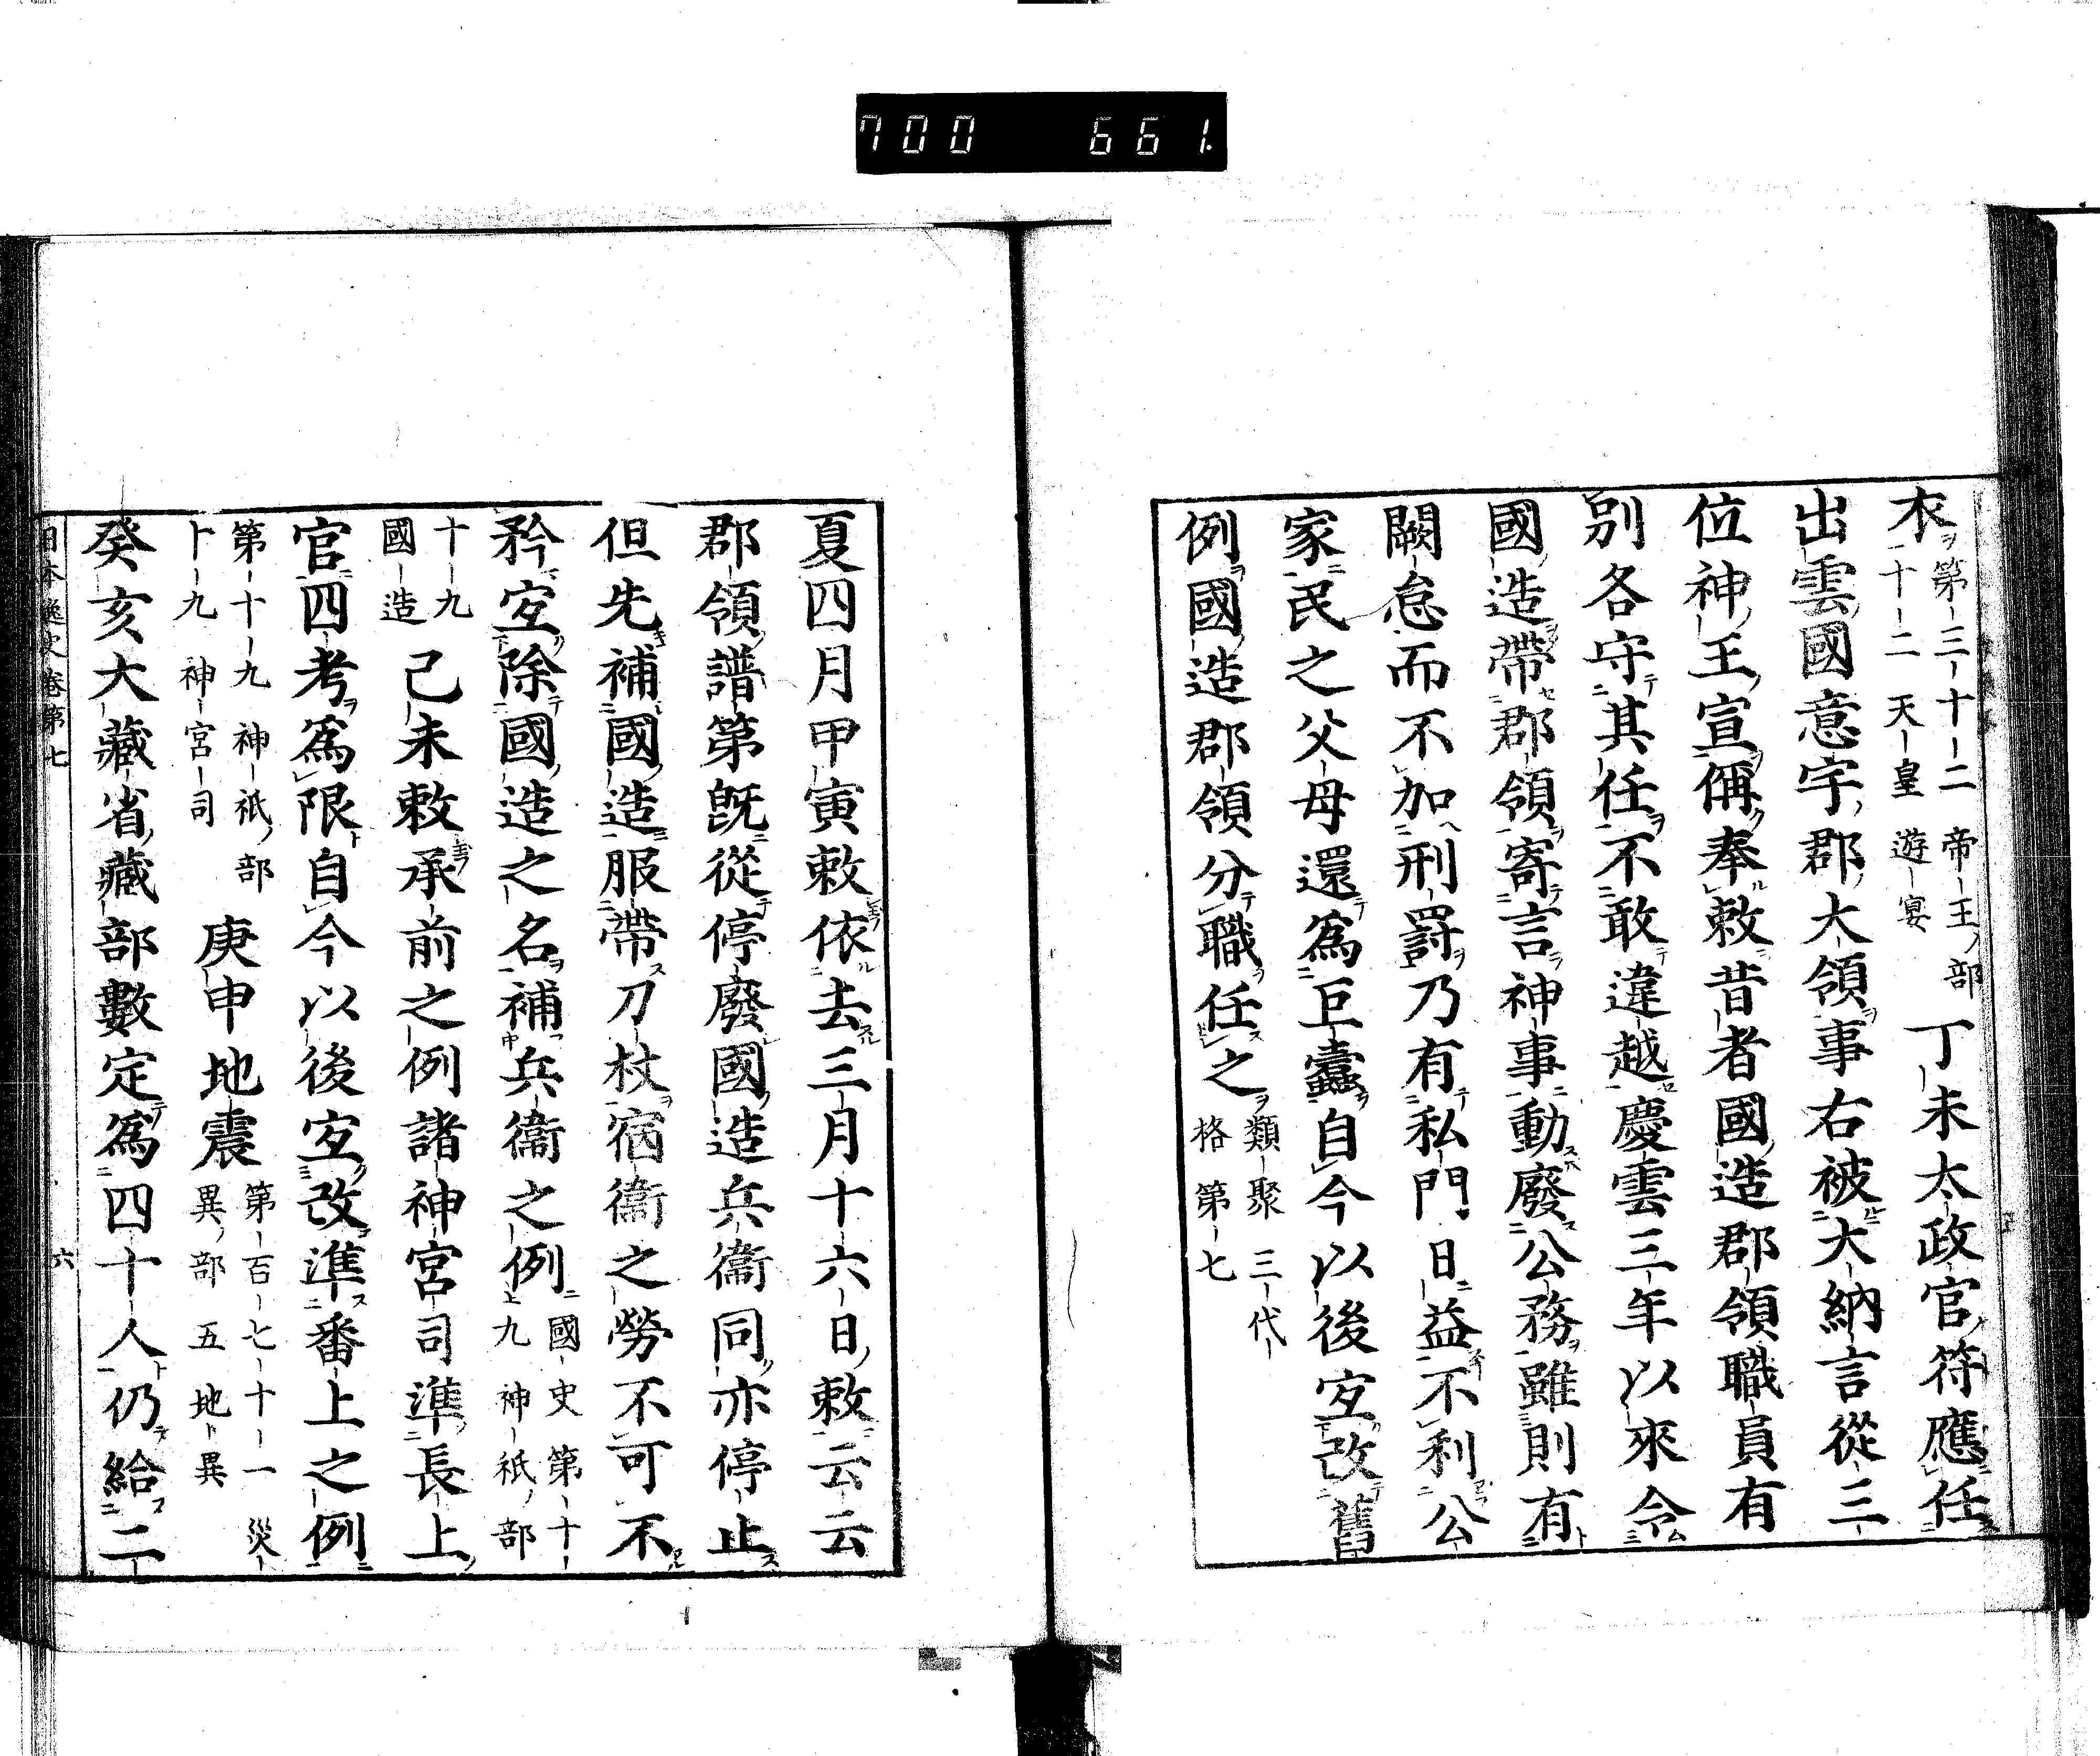 700 661.
衣第三十二 帝王ノ部
二十二 天皇遊宴 丁未太政官符應任
出雲國意宇郡大領事右被大納言從三
位神王宣偁奉敕昔者國造郡領職員有
別各守其任不敢違越慶雲三年以來令
國造帶郡領寄言神事動廢公務雖則有
闕怠而不加刑罰乃有私門日益不利公
家民之父母還爲巨蠹自今以後宐改舊
例國造郡領分職任之類聚三代
格第七
夏四月甲寅敕依去三月十六日敕云云
郡領譜第旣從停廢國造兵衞同亦停止
但先補國造服帶刀杖宿衞之勞不可不
矜宐除國造之名補兵衞之例國史第十
九 神祇ノ部
十九
國造 己未敕承前之例諸神宮司準長上
官四考爲限自今以後宐改準番上之例
第十九 神祇ノ部
十九 神宮司 庚申地震第百七十一 災
異ノ部 五 地異
癸亥大藏省藏部數定爲四十人仍給二
日本逸史卷第七 六